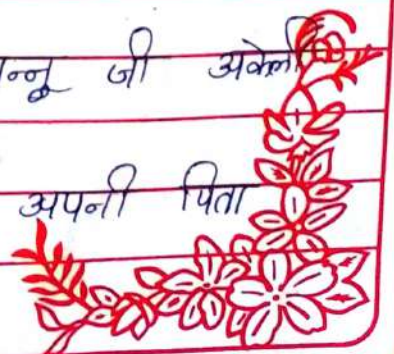 न्नू जी अकेली
अपनी पिता